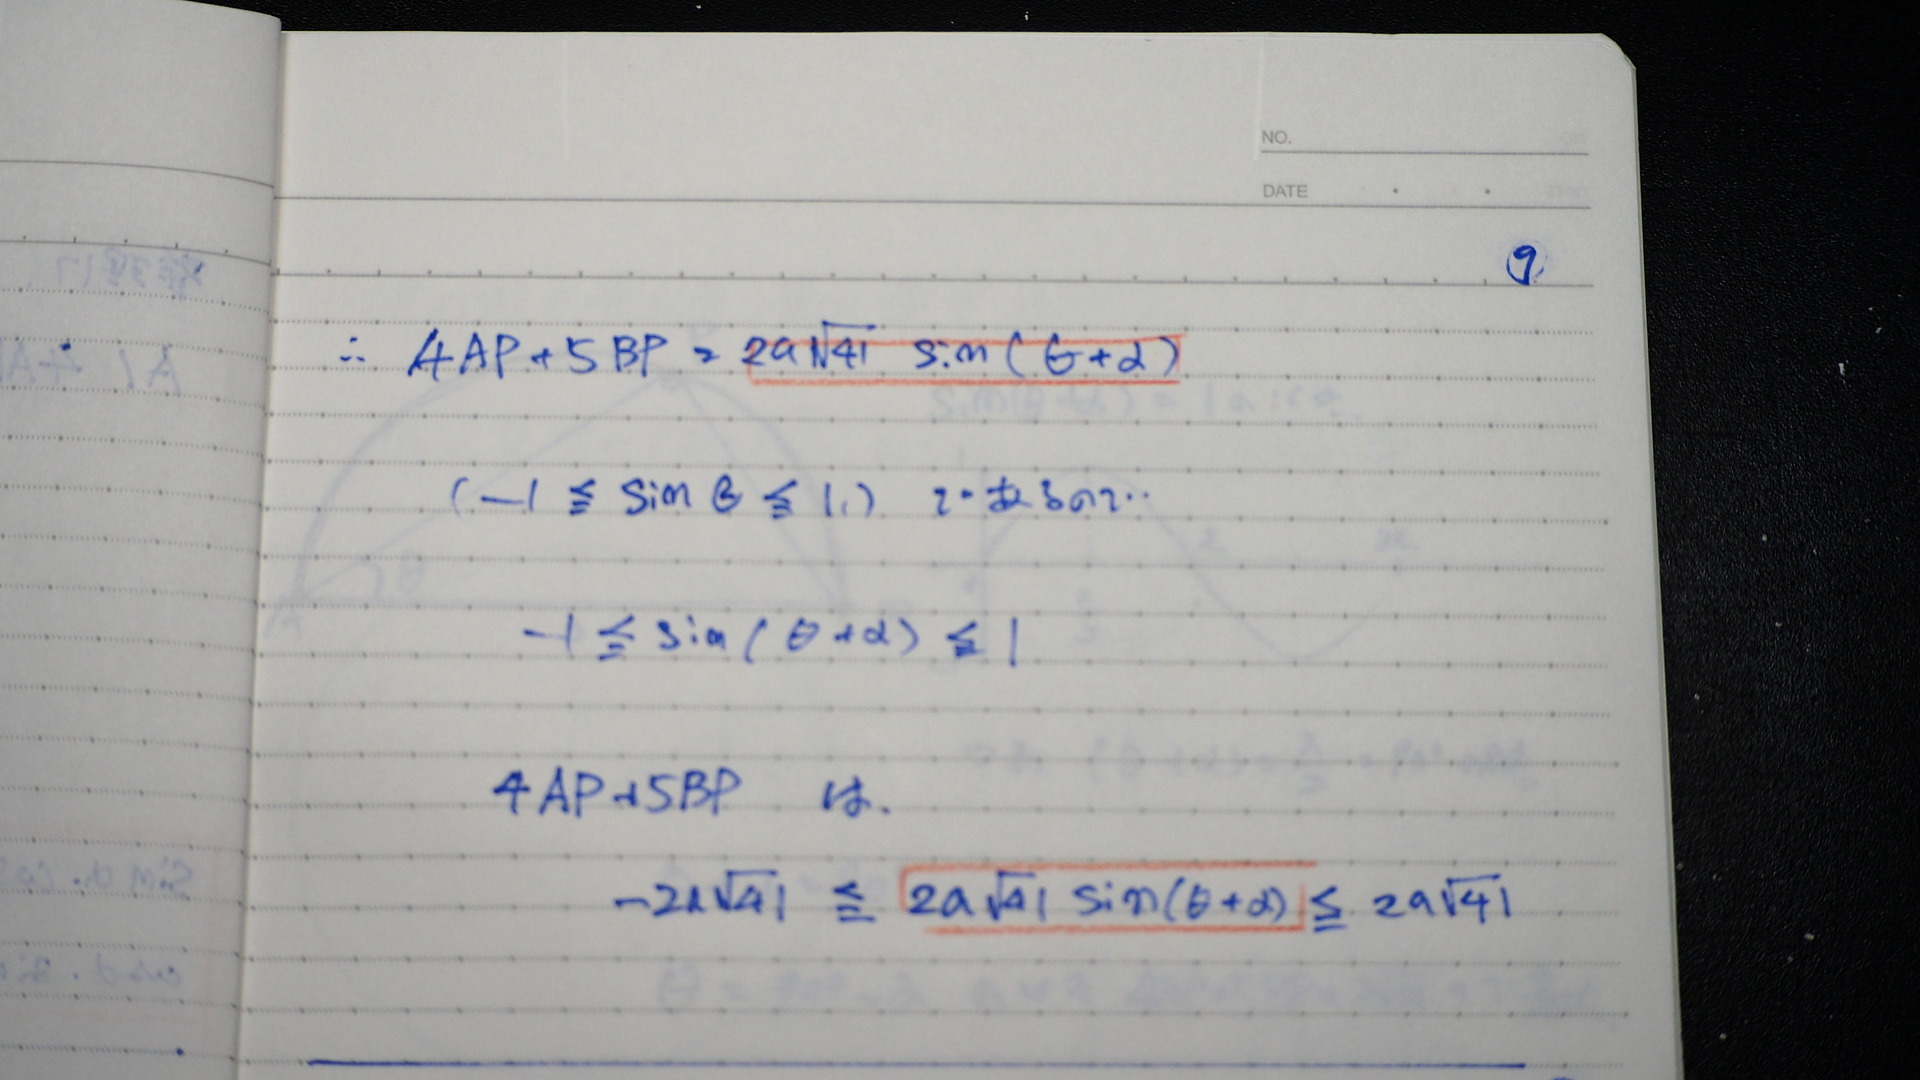 NO.
DATE
⑨
∴ 4AP+5BP = 2a√41 sin(θ+α)
(-1 ≦ sin θ ≦ 1.) であるので..
-1 ≦ sin(θ+α) ≦ 1
4AP+5BP は.
-2a√41 ≦ 2a√41 sin(θ+α) ≦ 2a√41